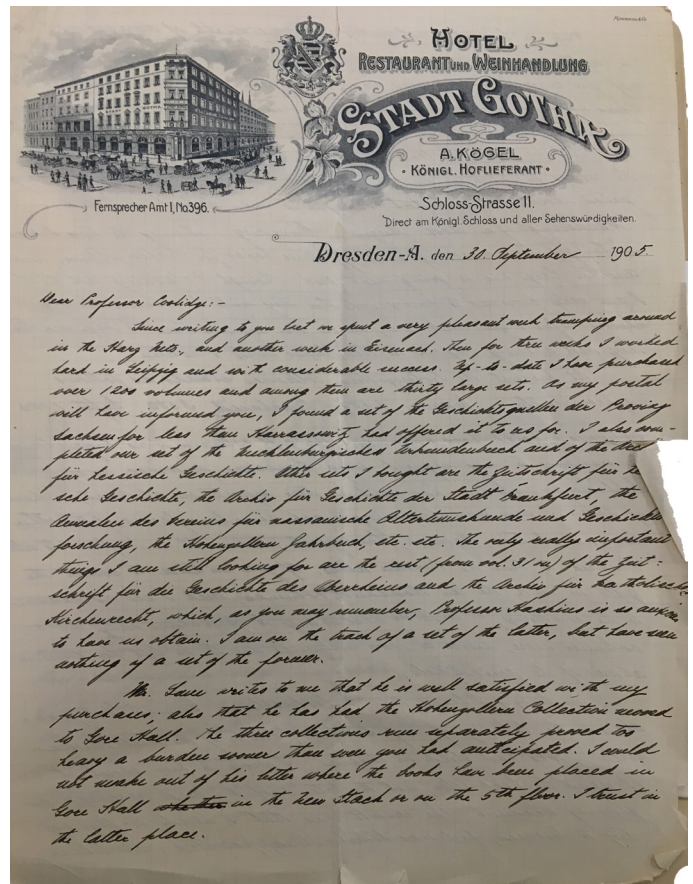 HOTEL
RESTAURANT UND WEINHANDLUNG
STADT GOTHA
A. KÖGEL
· KÖNIGL. HOFLIEFERANT ·
Fernsprecher Amt I, No 396.
Schloss-Strasse 11.
Direct am Königl. Schloss und aller Sehenswürdigkeiten.
Dresden-A. den 30. September 1905.
Dear Professor Coolidge:-
Since writing to you last we spent a very pleasant week tramping around
in the Harz Mts., and another week in Eisenach. Then for three weeks I worked
hard in Leipzig and with considerable success. Up-to-date I have purchased
over 1200 volumes and among them are thirty large sets. As my postal
will have informed you, I found a set of the Geschichtsquellen der Provinz
Sachsen for less than Harrassowitz had offered it to us for. I also com-
pleted our set of the Mecklenburgisches Urkundenbuch and of the
für hessische Geschichte. Other sets I bought are the Zeitschrift für
sche Geschichte, the Archiv für Geschichte der Stadt Frankfurt, the
Annalen des Vereins für nassauische Altertumskunde und Geschichts
forschung, the Hohenzollern Jahrbuch, etc. etc. The only really important
things I am still looking for are the rest (from vol. 31 on) of the Zeit-
schrift für die Geschichte des Oberrheins and the Archiv für katholisches
Kirchenrecht, which, as you may remember, Professor Haskins is so anxious
to have us obtain. I am on the track of a set of the latter, but have seen
nothing of a set of the former.
Mr. Lane writes to me that he is well satisfied with my
purchases; also that he has had the Hohenzollern Collection moved
to Gore Hall. The three collections run separately proved too
heavy a burden sooner than even you had anticipated. I could
not make out of his letter where the books have been placed in
Gore Hall in the New Stack or on the 5th floor. I trust in
the latter place.